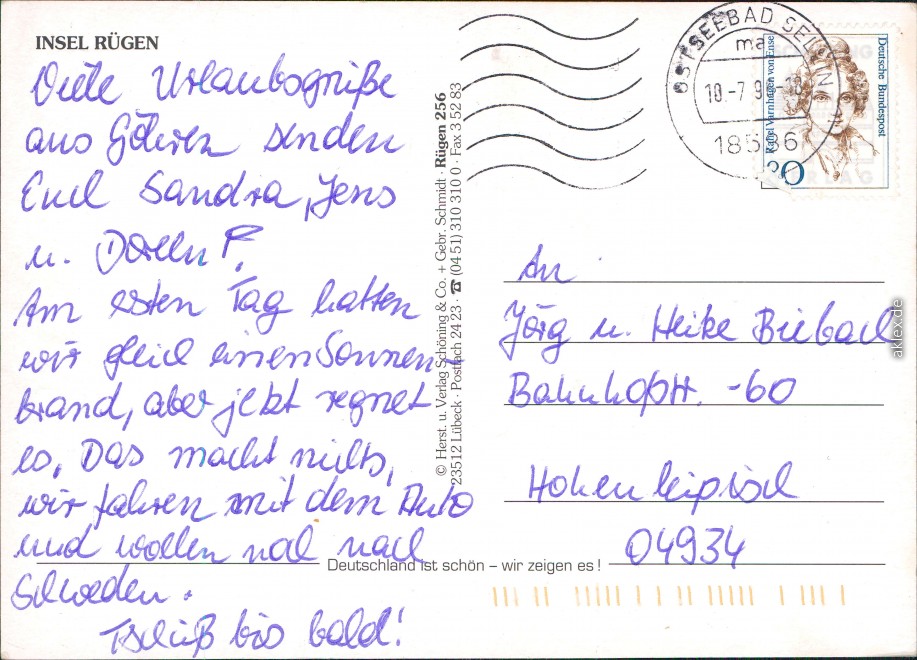 INSEL RÜGEN
Viele Urlaubsgrüße
aus Göhren senden
Euch Sandra, Jens
u. Doreen P.
Am ersten Tag hatten
wir gleich einen Sonnen-
brand, aber jetzt regnet
es. Das macht nichts,
wir fahren mit dem Auto
und wollen mal nach
Schweden.
Tschüß bis bald!
© Herst. u. Verlag Schöning & Co. + Gebr. Schmidt · Rügen 256
23512 Lübeck · Postfach 24 23 · ☎ (04 51) 310 310 0 · Fax 3 52 83
OSTSEEBAD SELLIN
ma
10.-7.9
18586
Rahel Varnhagen von Ense
Deutsche Bundespost
An
Jörg u. Heike Biebach
Bahnhofstr. -60
Hohenleipisch
04934
Deutschland ist schön – wir zeigen es!
aklex.de